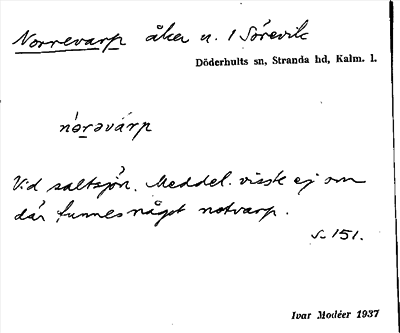 Norrevarp åker n. 1 Sörevik
Döderhults sn, Stranda hd, Kalm. l.
nɵ́rəvárp
Vid saltsjön. Meddel. visste ej om
där funnes något notvarp.
s. 151.
Ivar Modéer 1937